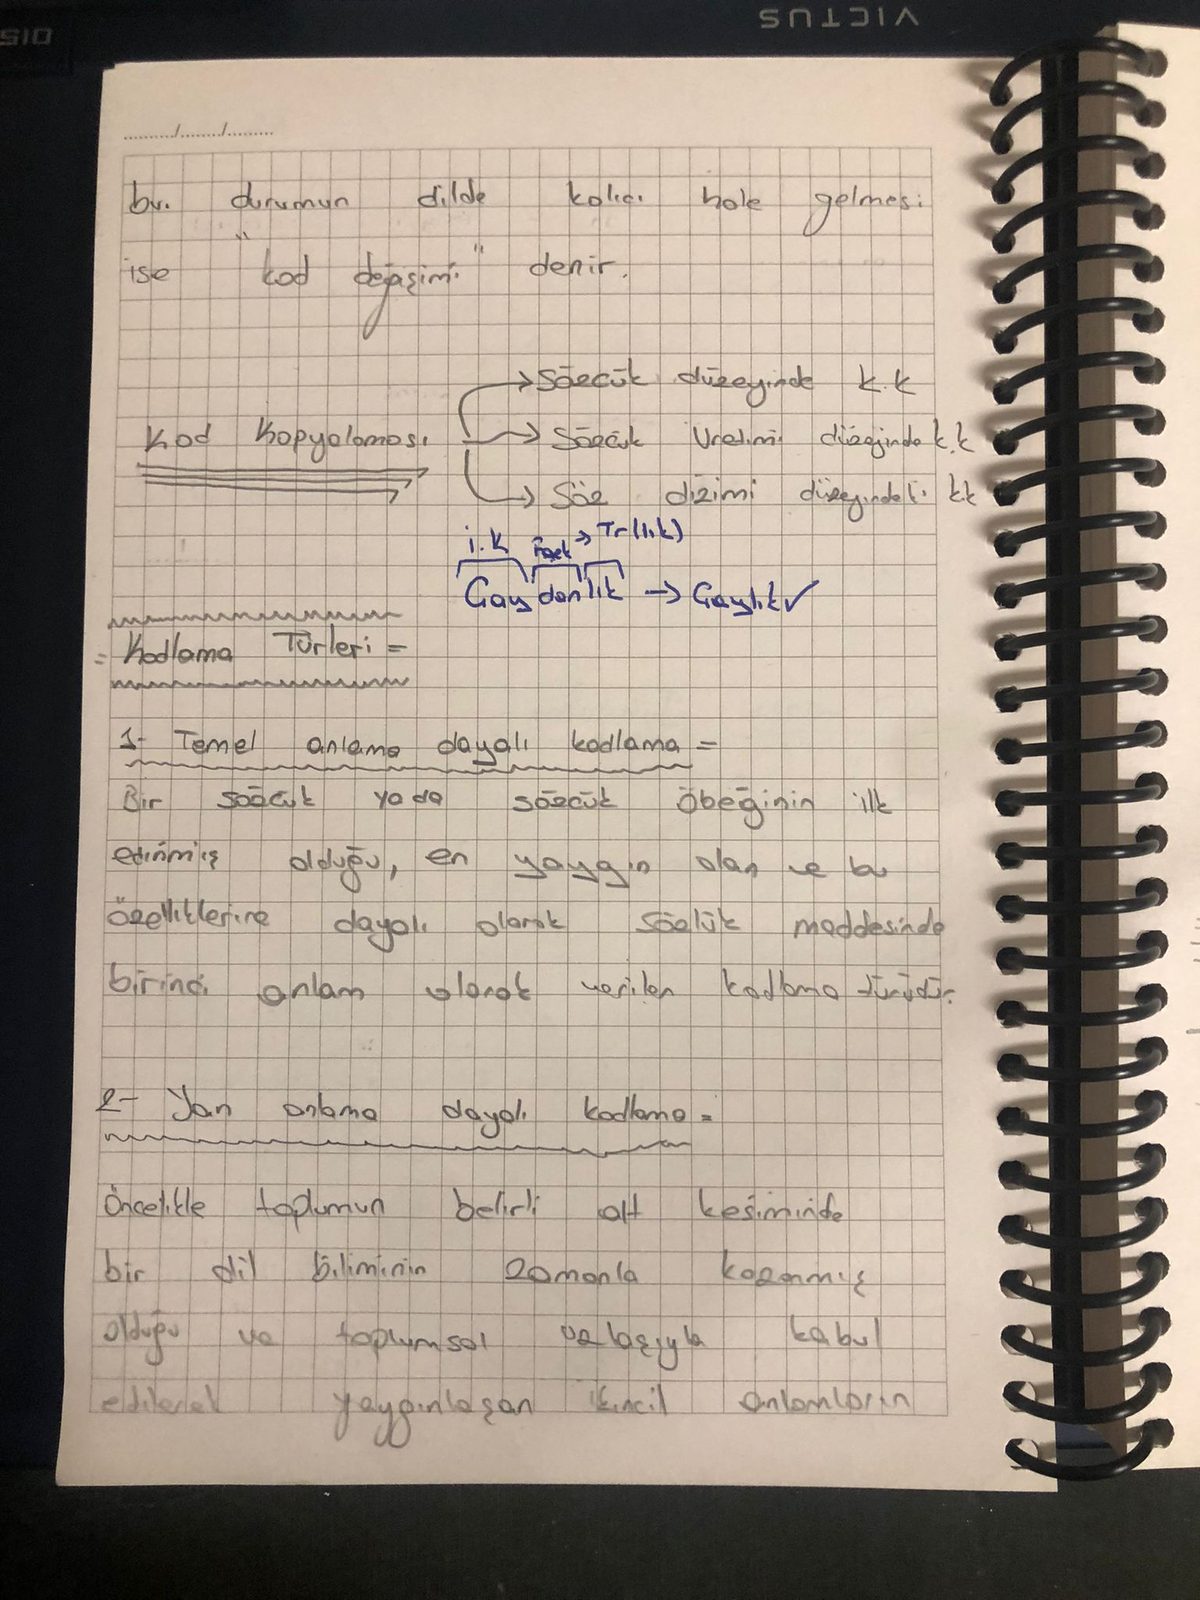 VICTUS
bu durumun dilde kalıcı hale gelmesi
ise "kod değişimi" denir.
Kod Kopyalaması
→ Sözcük düzeyinde k.k
→ Sözcük Üretimi düzeyinde k.k
→ Söz dizimi düzeyindeki k.k
i.k → Tr(lık)
Gaydanlık → Gaylık ✓
= Kodlama Türleri =
1- Temel anlama dayalı kodlama =
Bir sözcük yada sözcük öbeğinin ilk
edinmiş olduğu, en yaygın olan ve bu
özelliklerine dayalı olarak sözlük maddesinde
birinci anlam olarak verilen kodlama türüdür.
2- Yan anlama dayalı kodlama =
Öncelikle toplumun belirli alt kesiminde
bir dil biliminin zamanla kazanmış
olduğu ve toplumsal uzlaşıyla kabul
edilerek yaygınlaşan ikincil anlamların